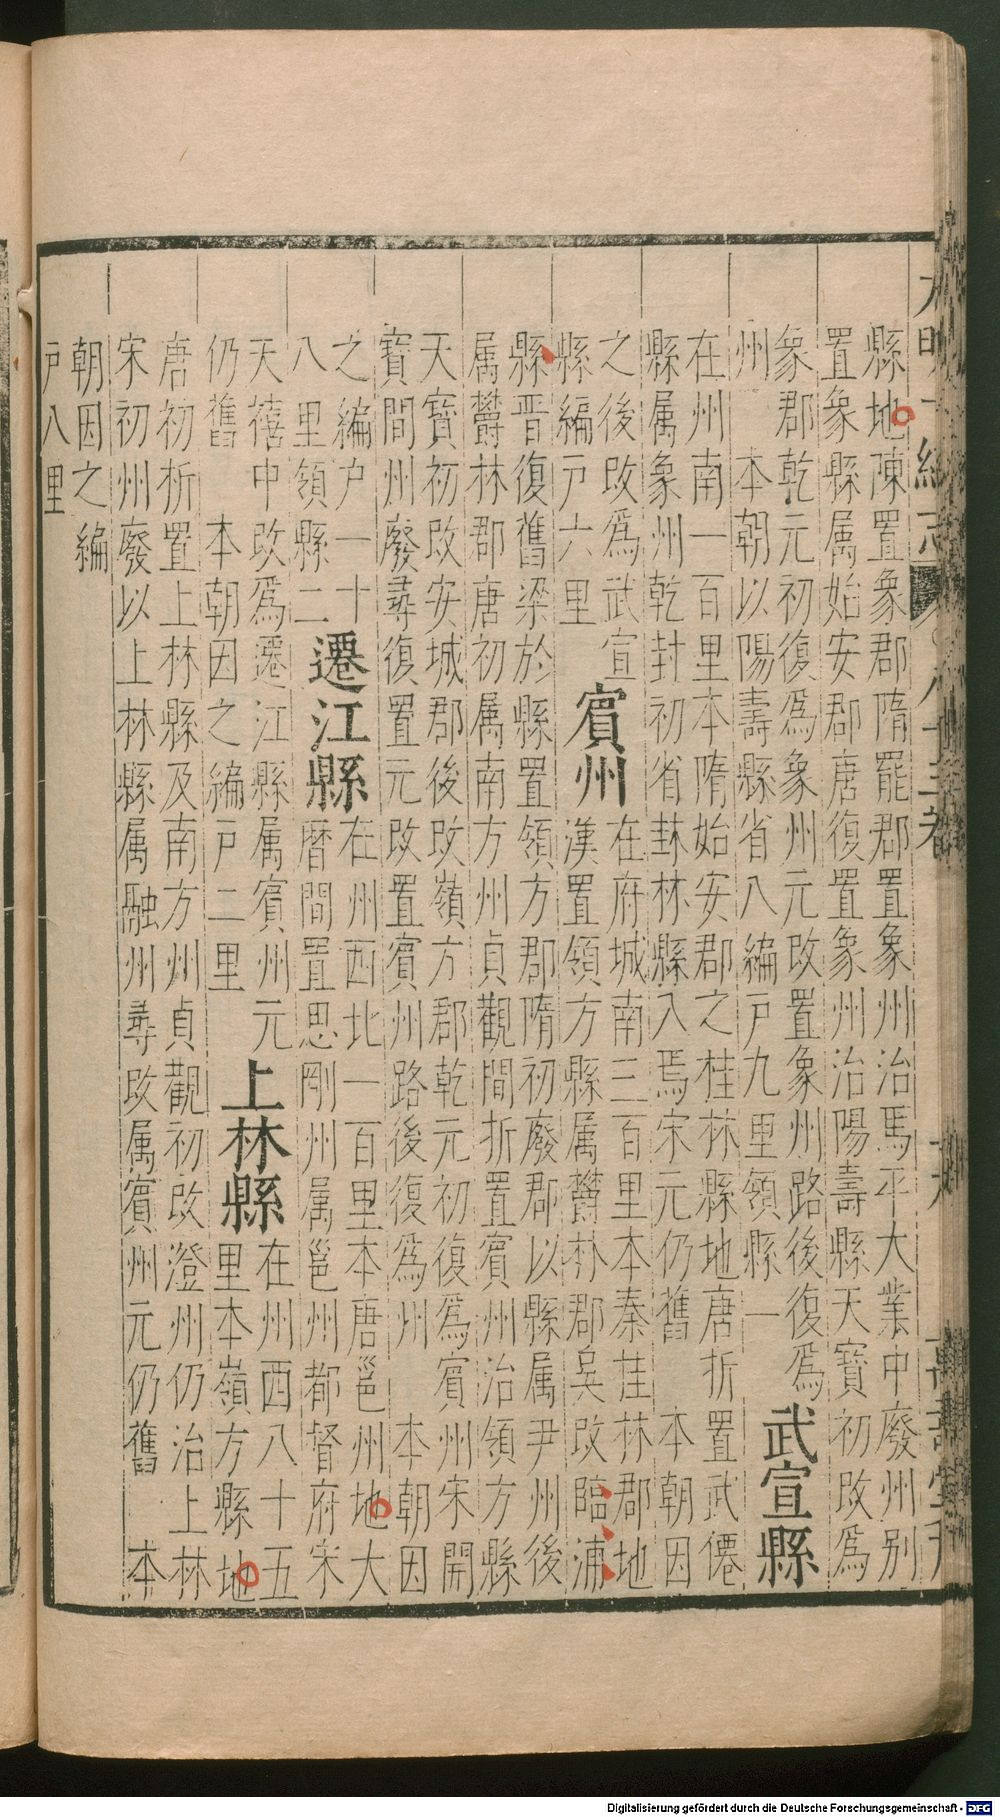 大明一統志 八十三卷 十九 萬壽堂刊
縣地陳置象郡隋罷郡置象州治馬平大業中廢州別
置象縣属始安郡唐復置象州治陽壽縣天寶初改爲
象郡乾元初復爲象州元改置象州路後復爲
州 本朝以陽壽縣省入編戸九里領縣一
武宣縣
在州南一百里本隋始安郡之桂林縣地唐折置武僊
縣属象州乾封初省林縣入焉宋元仍舊 本朝因
之後改爲武宣
縣編戸六里
賓州
在府城南三百里本秦桂林郡地
漢置領方縣属欝林郡吳改臨浦
縣晋復舊梁於縣置領方郡隋初廢郡以縣属尹州後
属欝林郡唐初属南方州貞觀間折置賓州治領方縣
天寶初改安城郡後改嶺方郡乾元初復爲賓州宋開
寶間州廢尋復置元改置賓州路後復爲州 本朝因
之編户一十
八里領縣二
遷江縣
在州西北一百里本唐邕州地大
暦間置思剛州属邕州都督府宋
天禧中改爲遷江縣属賓州元
仍舊 本朝因之編戸二里
上林縣
在州西八十五
里本嶺方縣地
唐初折置上林縣及南方州貞觀初改澄州仍治上林
宋初州廢以上林縣属融州尋改属賓州元仍舊 本
朝因之編
戸八里
Digitalisierung gefördert durch die Deutsche Forschungsgemeinschaft - DFG